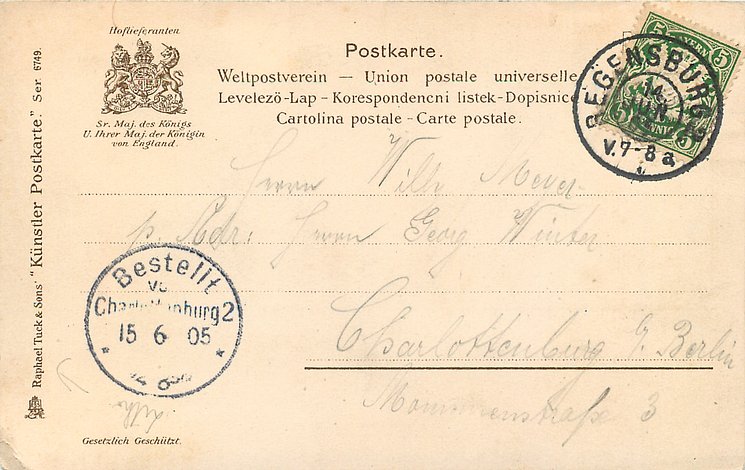 Hoflieferanten
Sr. Maj. des Königs
U. Ihrer Maj. der Königin
von England.
Postkarte.
Weltpostverein — Union postale universelle
Levelezö-Lap - Korespondencni listek-Dopisnice
Cartolina postale - Carte postale.
BAYERN
5 5
PFENNIG
5 5
REGENSBURG
14
JUN
V.7-8a
Herrn Willy Meyer
p. Adr: Herrn Georg Winter
Charlottenburg b/ Berlin
Mommsenstraße 3
Bestellt
vo
Charlottenburg 2
15 6 05
Raphael Tuck & Sons' "Künstler Postkarte." Ser 6749.
Gesetzlich Geschützt.